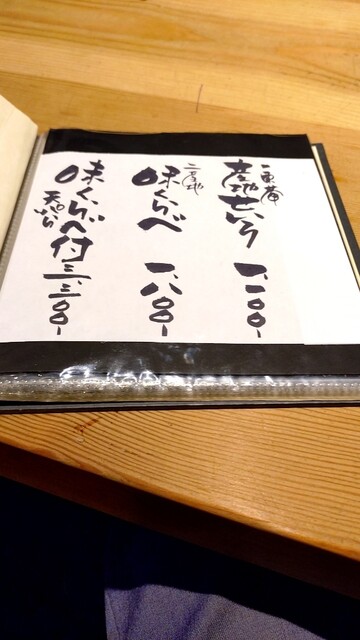 産地せいろ 一、一〇〇-
二産地
味くらべ 一、八〇〇-
天ぷら
味くらべ付 三、三〇〇-